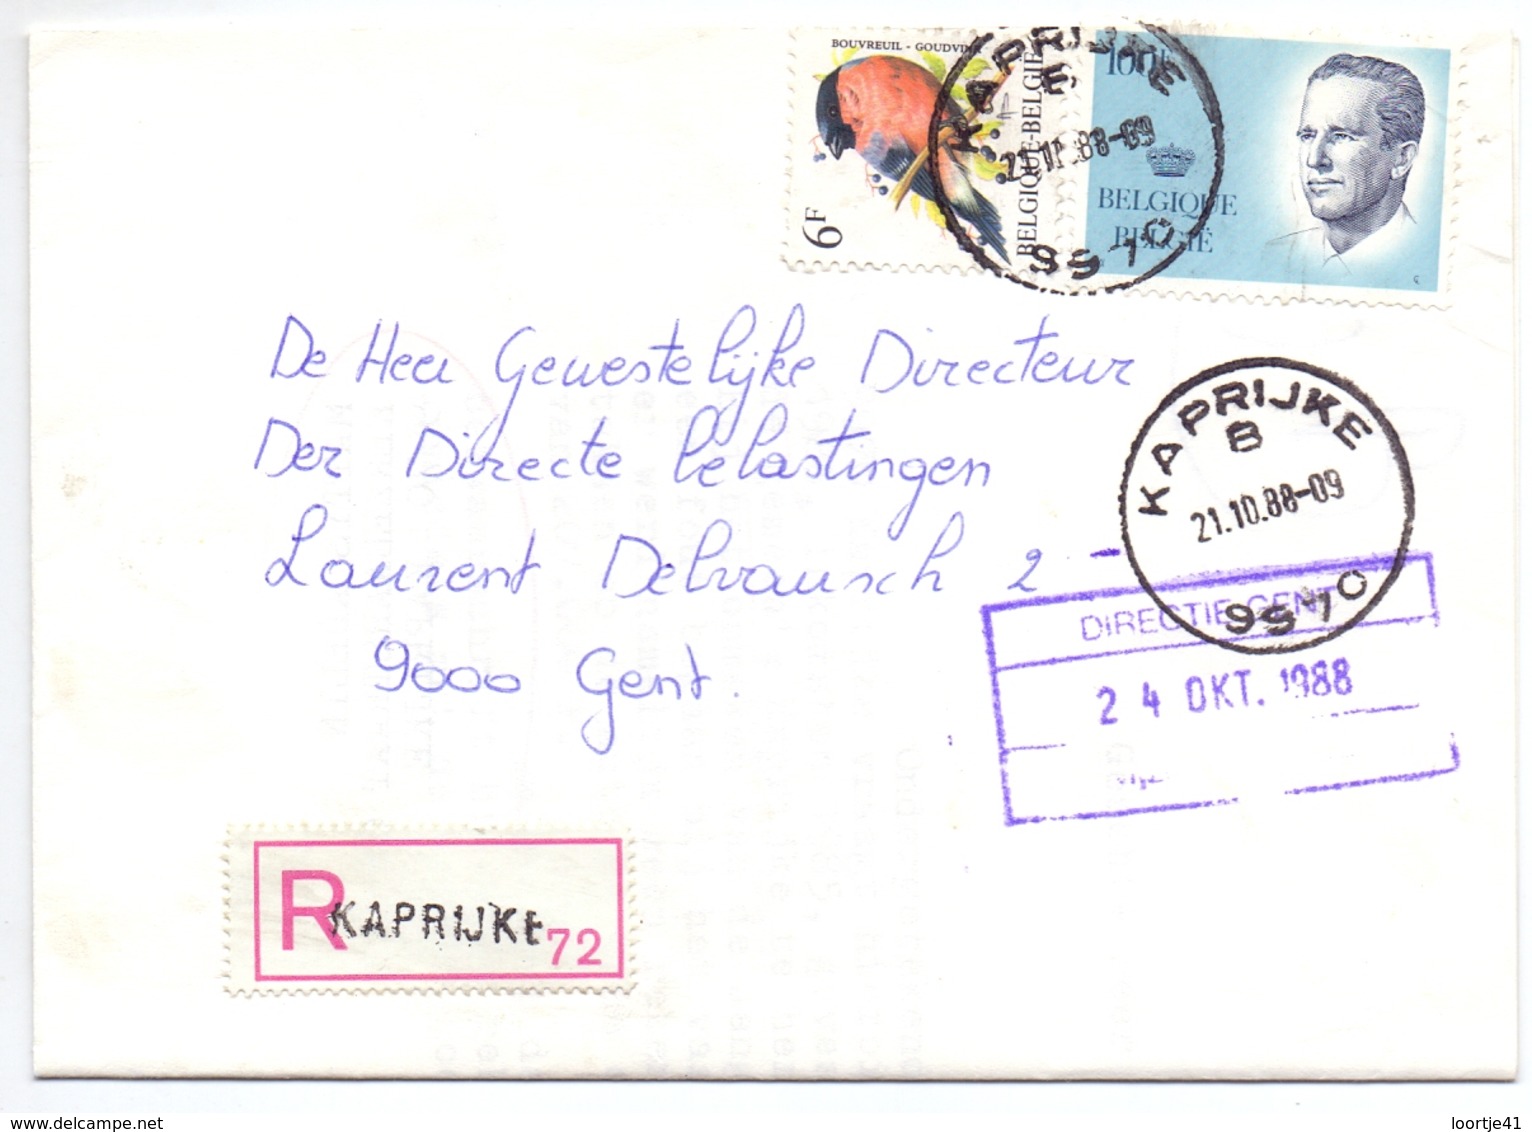 BOUVREUIL - GOUDVINK
6F
BELGIQUE-BELGIË
100F
BELGIQUE
BELGIË
KAPRIJKE
E
9970
De Heer Gewestelijke Directeur
Der Directe belastingen
Laurent Delvausch 2 -
9000 Gent.
KAPRIJKE
B
21.10.88-09
9970
DIRECTIE GENT
24 OKT. 1988
R KAPRIJKE 72
www.delcampe.net
loortje41